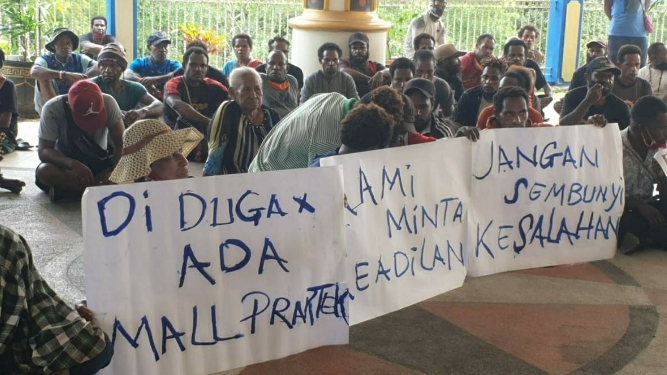 Di DUGA X
ADA
MALL PRAKTEK
AMI
MINTA
EADILAN
JANGAN
SEMBUNYI
KESALAHAN